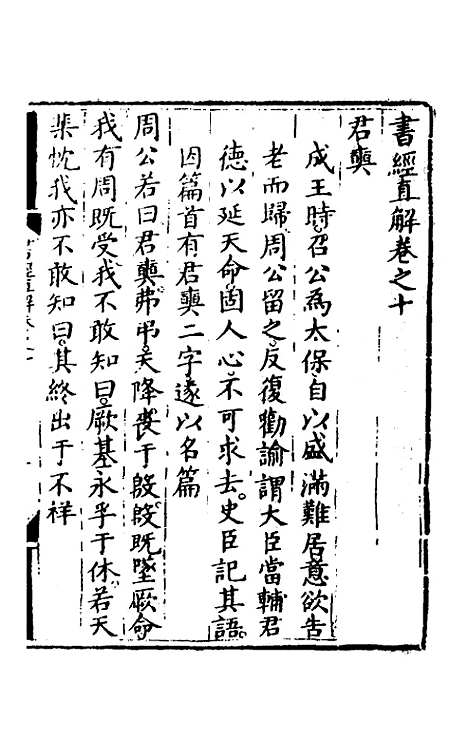 書經直解卷之十
君奭
成王時召公為太保自以盛滿難居意欲告
老而歸周公留之反復勸諭謂大臣當輔君
德以延天命固人心不可求去史臣記其語
因篇首有君奭二字遂以名篇
周公若曰君奭弗弔天降喪于殷殷既墜厥命
我有周既受我不敢知曰厥基永孚于休若天
棐忱我亦不敢知曰其終出于不祥